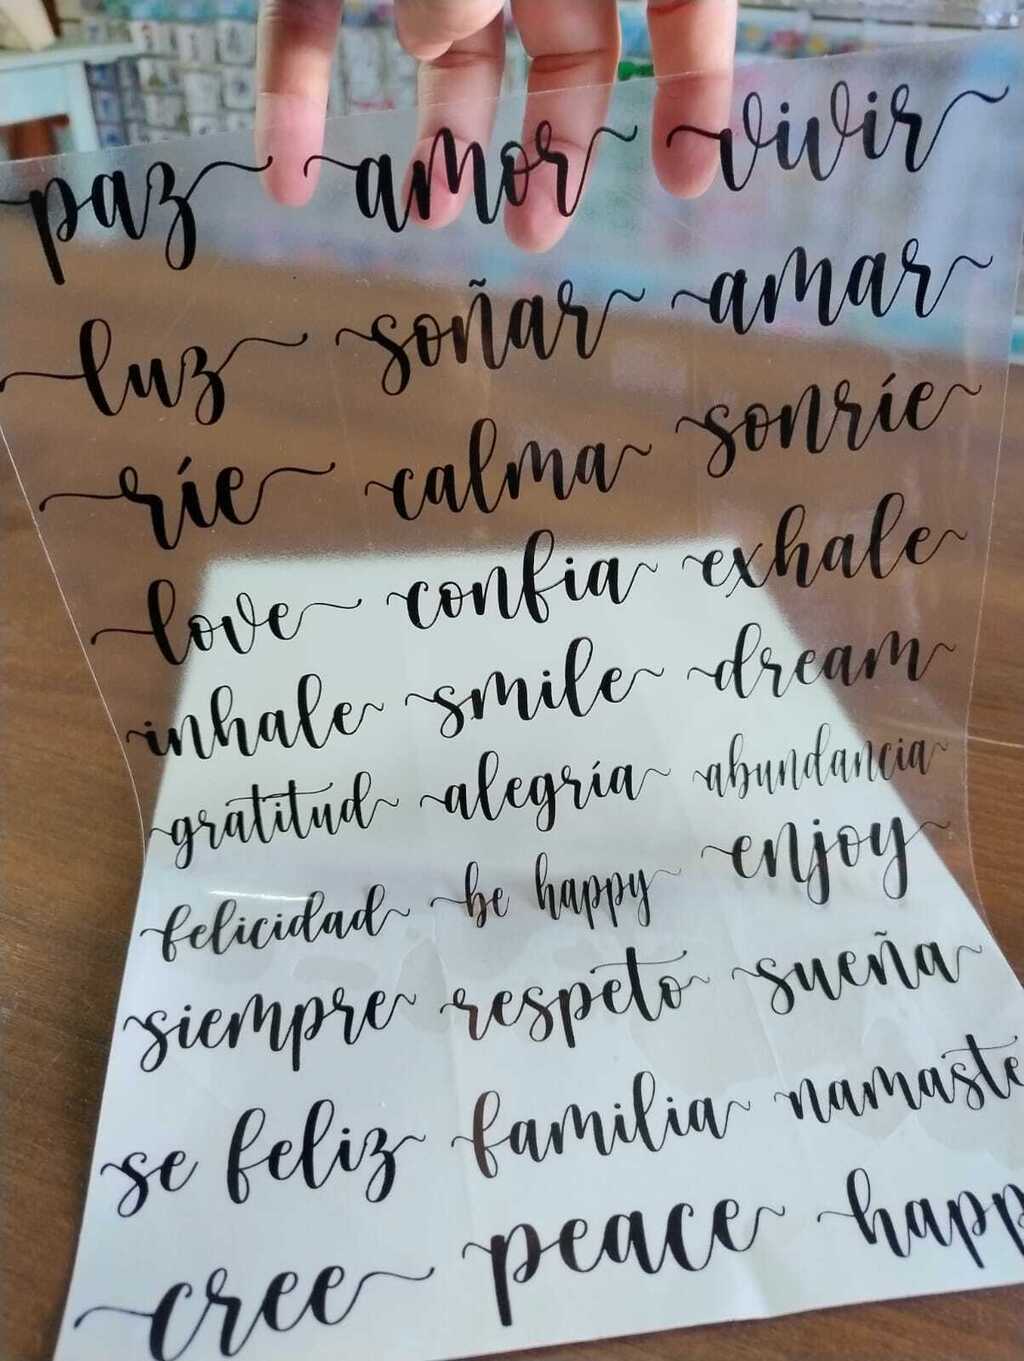 paz amor vivir
luz soñar amar
ríe calma sonríe
love confia exhale
inhale smile dream
gratitud alegría abundancia
felicidad be happy enjoy
siempre respeto sueña
se feliz familia namaste
cree peace happ